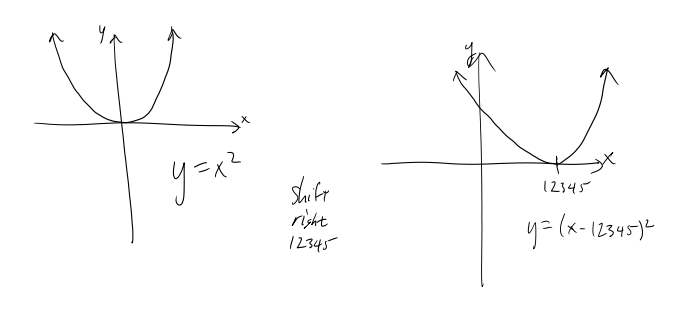 y
x
y = x²
Shift
right
12345
y
x
12345
y = (x - 12345)²